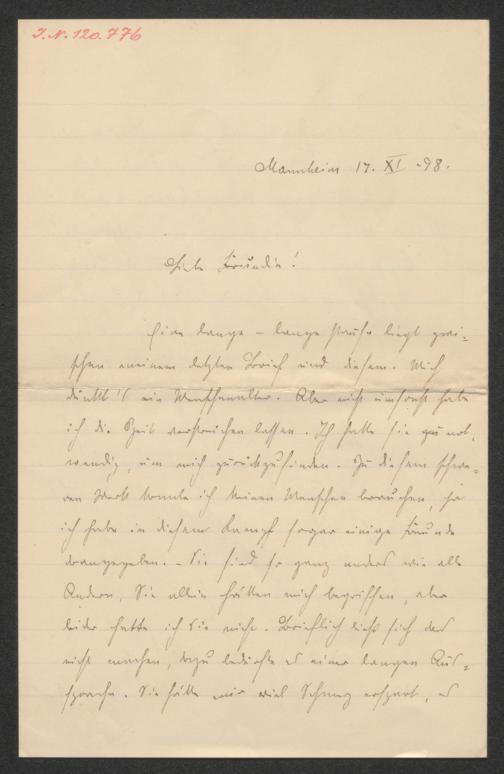 J.N. 120.776
Mannheim 17. XI. 98.
Liebe Freundin!
Eine lange – lange Pause liegt zwi-
schen meinem letzten Brief und diesem. Mich
dünkt's ein Menschenalter. Aber nicht umsonst habe
ich die Zeit verstreichen lassen. Ich hatte sie zu not-
wendig, um mich zurückzufinden. Zu diesem schwe-
ren Werk konnte ich keinen Menschen brauchen, ja
ich habe in diesem Kampf sogar einige Freunde
drangegeben. – Sie sind so ganz anders wie alle
Andern, Sie allein hätten mich begriffen, aber
leider hatte ich Sie nicht. Brieflich ließ sich das
nicht machen, dazu bedurfte es einer langen Aus-
sprache. Sie hätte mir viel Schmerz erspart, es